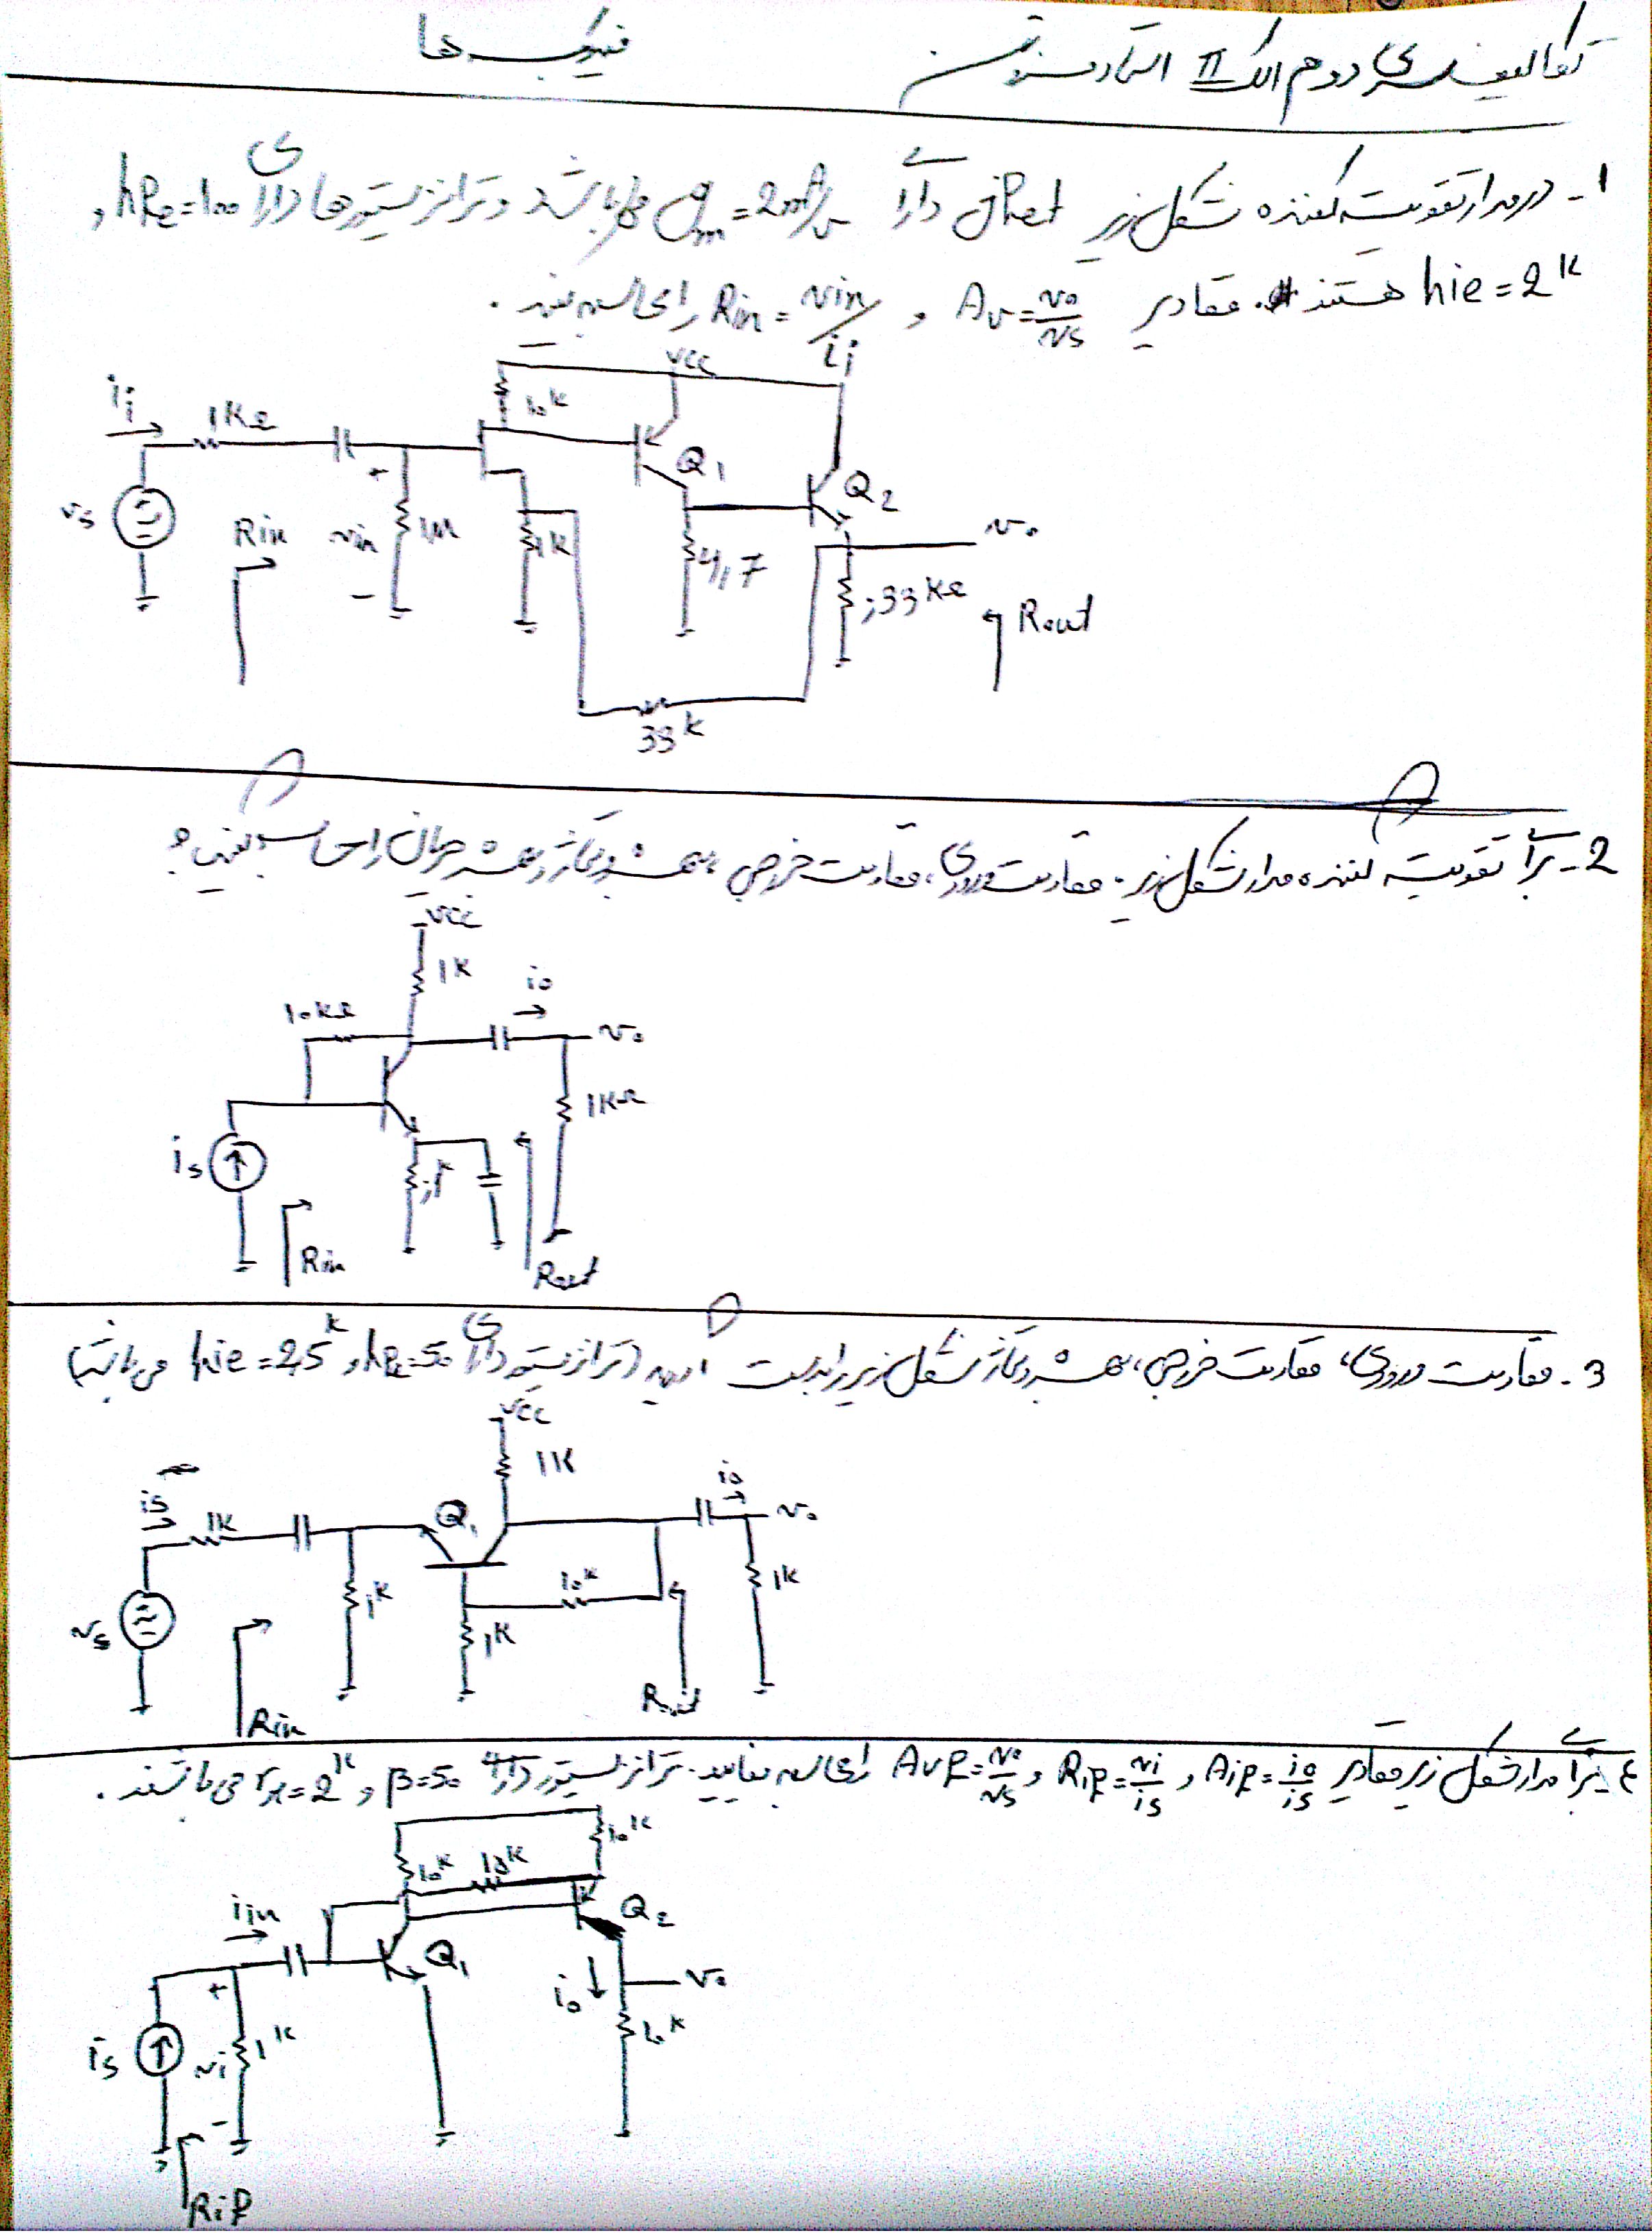 تکالیف سری دوم الک II استاد
فیدبک ها
1- در مدار تقویت کننده شکل زیر jfet دارای gm = 2mA/v می باشد و ترانزیستورها دارای hfe = 100 و
hie = 2k هستند. مقادیر Av = vo/vs و Rin = vin/ii را محاسبه کنید.
ii
1KΩ
vs
Rin
vin
+
-
1M
10k
1k
vcc
Q1
4,7
Q2
vo
,33KΩ
Rout
33k
2- برای تقویت کننده مدار شکل زیر. مقاومت ورودی، مقاومت خروجی، بهره ولتاژ و بهره جریان را حساب کنید؟
vcc
1K
10KΩ
io
vo
1KΩ
is
,1k
Rin
Rout
3- مقاومت ورودی، مقاومت خروجی، بهره ولتاژ شکل زیر را بدست آورید (ترانزیستور دارای hfe = 50 و hie = 2,5k می باشد)
vcc
1K
is
1K
Q1
io
vo
1k
10k
1K
1K
vs
Rin
Rout
4- برای مدار شکل زیر مقادیر Aif = io/is و Rif = vi/is و Avf = vo/vs را محاسبه نمایید. ترانزیستور دارای β = 50 و rπ = 2k می باشند.
10k
10k
10k
iin
Q1
Q2
+
io
vo
is
vi
1k
10k
-
Rif